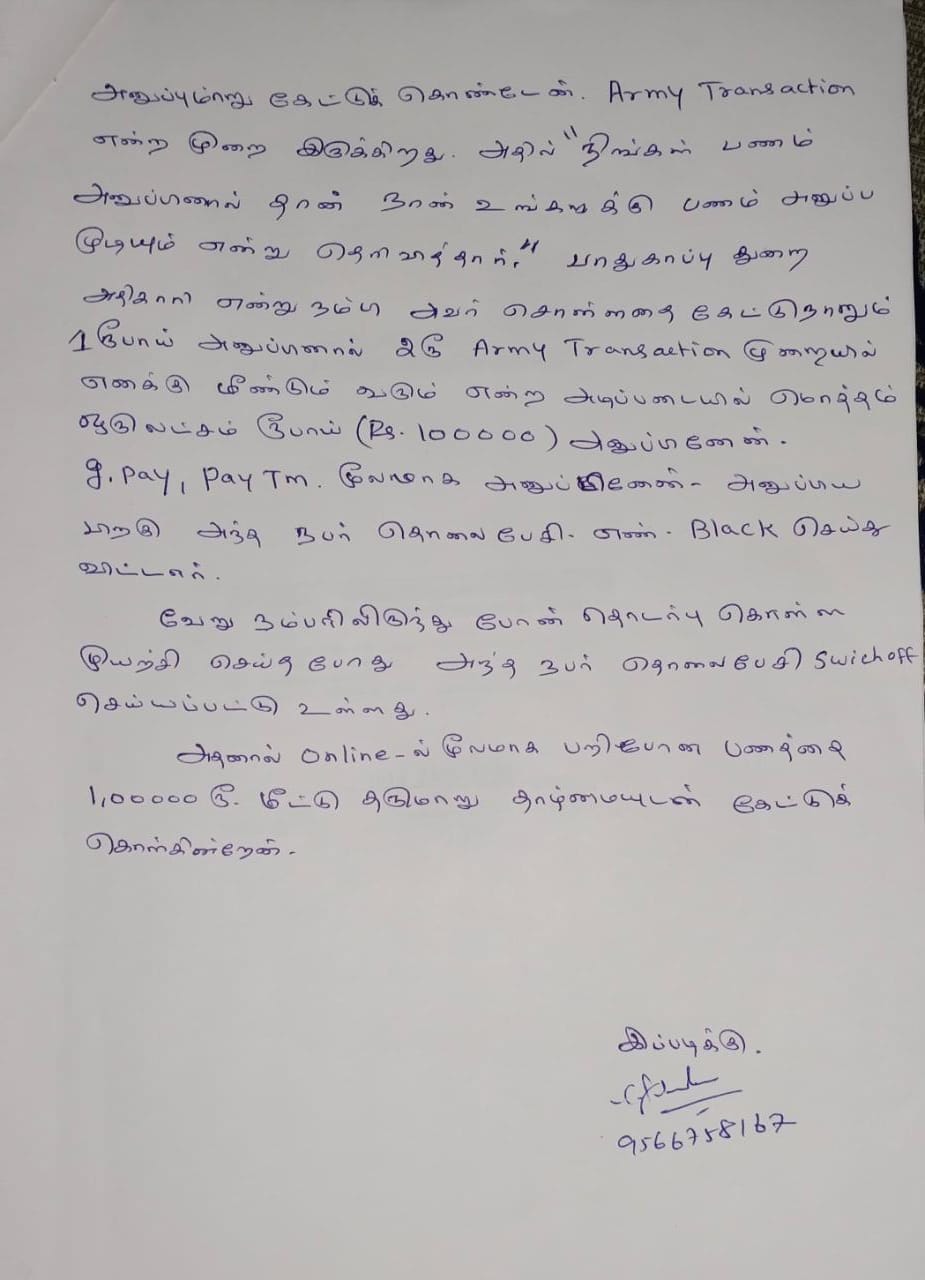 அனுப்புமாறு கேட்டுக் கொண்டேன். Army Transaction
என்ற முறை இருக்கிறது. அதில் "நீங்கள் பணம்
அனுப்பினால் தான் நான் உங்களுக்கு பணம் அனுப்ப
முடியும் என்று தெரிவித்தார்." பாதுகாப்பு துறை
அதிகாரி என்று நம்பி அவர் சொன்னதை கேட்டு நானும்
1 ரூபாய் அனுப்பினால் 2ரூ Army Transaction முறையில்
எனக்கு மீண்டும் வரும் என்ற அடிப்படையில் மொத்தம்
ஒரு லட்சம் ரூபாய் (Rs. 100000) அனுப்பினேன்.
g.pay, Pay Tm. மூலமாக அனுப்பினேன்- அனுப்பிய
பிறகு அந்த நபர் தொலைபேசி. எண். Black செய்து
விட்டார்.
வேறு நம்பரிலிருந்து போன் தொடர்பு கொள்ள
முயற்சி செய்த போது அந்த நபர் தொலைபேசி Swichoff
செய்யப்பட்டு உள்ளது.
அதனால் Online-ல் மூலமாக பறிபோன பணத்தை
1,00000 ரூ. மீட்டு தருமாறு தாழ்மையுடன் கேட்டுக்
கொள்கின்றேன்.
இப்படிக்கு.
9566758167